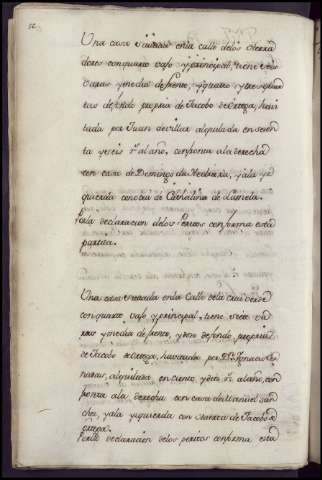 Una casa situada en la calle de los Herra
dores con quarto vajo y principal, tiene seis
varas y media de frente, y quatro y tres quar
tas de fondo propria de Jacobo de Ortega, havi
tada por Juan de Villar alquilada en sesen
ta y seis rs al año. confronta a la derecha
con casa de Domingo da Medeira, y a la yz
quierda con otra de Cathalina de Lamela.
Por la declaracion de los Peritos conforma esta
partida.
Una casa situada en la Calle de la Cruz Verde
con quarto vajo y principal, tiene siete va
ras y media de frente, y doze de fondo, propria
de Jacobo de Ortega, havitada por Dn Ignacio Se
naras, alquilada en ciento y diez rs al año, con
fronta a la derecha con casa de Manuel San
chez, y a la yzquierda con otra de Jacobo de
Ortega.
Por la declaracion de los peritos conforma esta